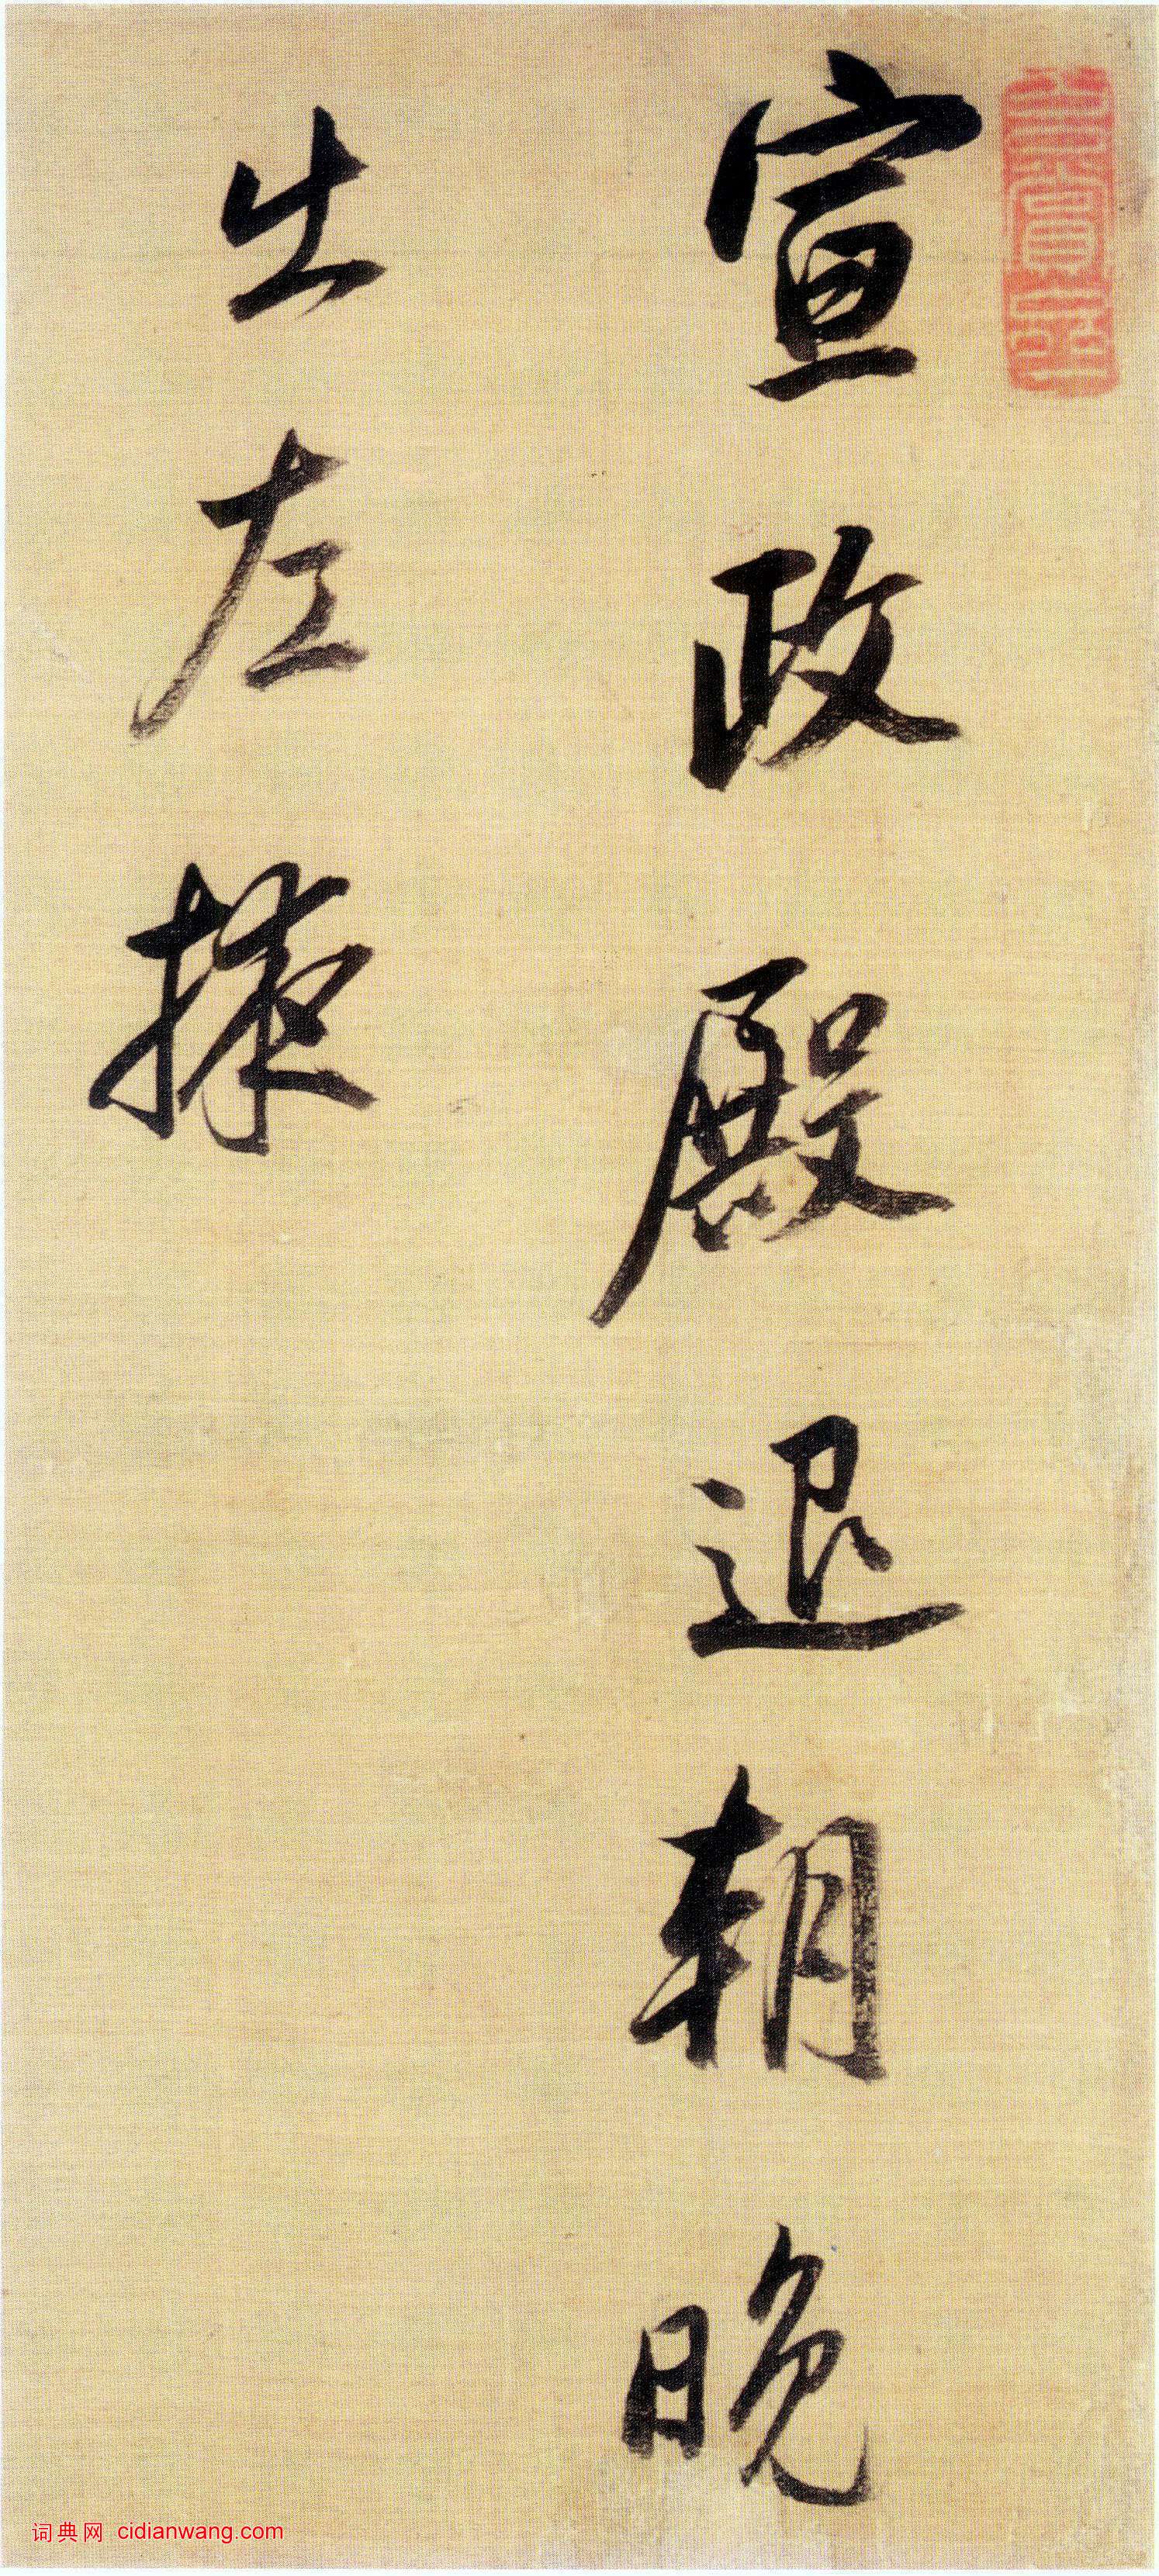 宣政殿退朝晚
出左掖
词典网 cidianwang.com